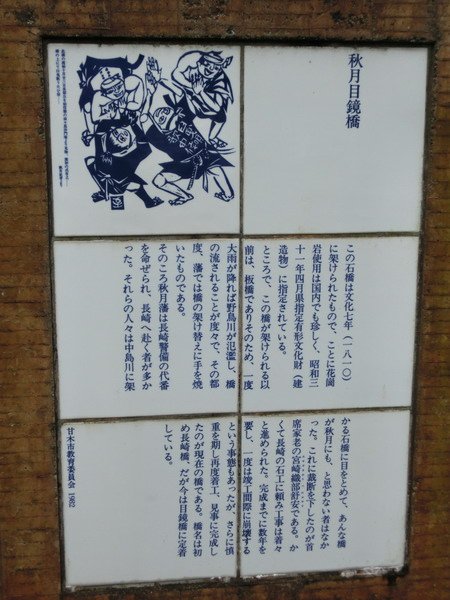 秋月目鏡橋
この石橋は文化七年(一八一〇)
に架けられたもので、ことに花崗
岩使用は国内でも珍しく、昭和三
十一年四月県指定有形文化財(建
造物)に指定されている。
ところで、この橋が架けられる以
前は、板橋でありそのため、一度
大雨が降れば野鳥川が氾濫し、橋
の流されることが度々で、その都
度、藩では橋の架け替えに手を焼
いたものである。
そのころ秋月藩は長崎警備の代番
を命ぜられ、長崎へ赴く者が多か
った。それらの人々は中島川に架
かる石橋に目をとめて、あんな橋
が秋月にも、と思わない者はなか
った。これに裁断を下したのが首
席家老の宮崎織部舒安である。か
くて長崎の石工に頼み工事は着々
と進められた。完成までに数年を
要し、一度は竣工間際に崩壊する
という事態もあったが、さらに慎
重を期し再度着工、見事に完成し
たのが現在の橋である。橋名は初
め長崎橋、だが今は目鏡橋に定着
している。
甘木市教育委員会 1982